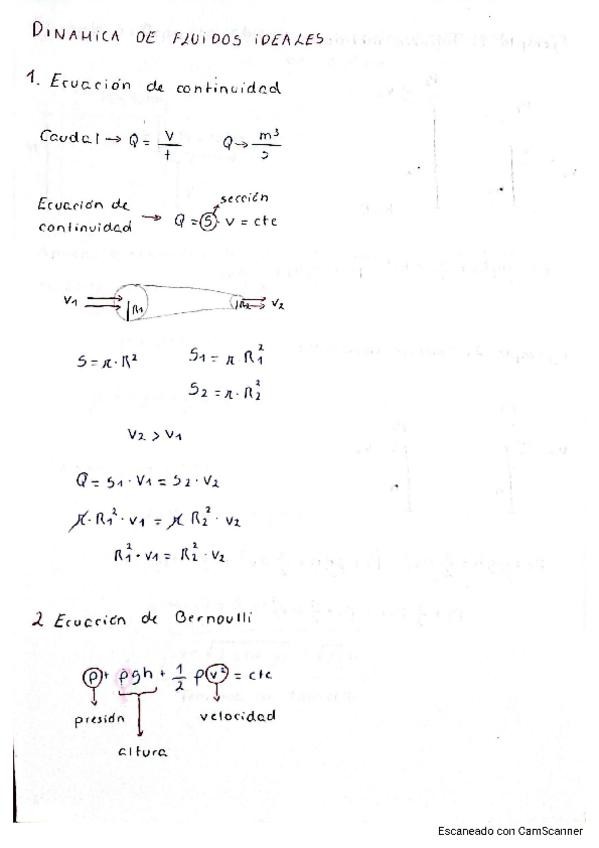 DINAMICA DE FLUIDOS IDEALES
1. Ecuación de continuidad
Caudal → Q = V/t Q → m³/s
sección
Ecuación de continuidad → Q = S · v = cte
V1 R1 R2 V2
S = π · R² S1 = π R1²
S2 = π · R2²
V2 > V1
Q = S1 · V1 = S2 · V2
π · R1² · v1 = π R2² · v2
R1² · v1 = R2² · v2
2 Ecuación de Bernoulli
p + ρgh + 1/2 ρ v² = cte
presión velocidad
altura
Escaneado con CamScanner